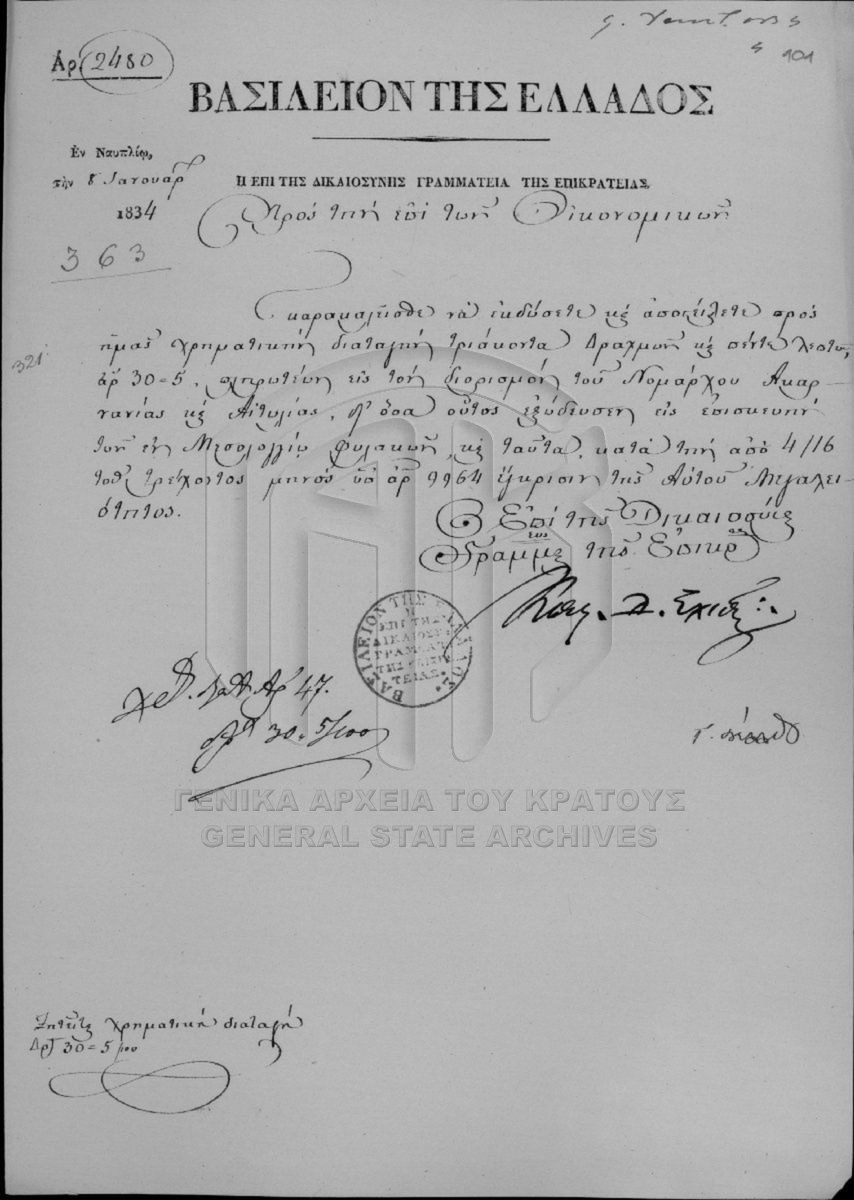 101
Ἀρ. 2480
ΒΑΣΙΛΕΙΟΝ ΤΗΣ ΕΛΛΑΔΟΣ
Ἐν Ναυπλίῳ,
τὴν 8 Ἰανουαρ
1834
Η ΕΠΙ ΤΗΣ ΔΙΚΑΙΟΣΥΝΗΣ ΓΡΑΜΜΑΤΕΙΑ ΤΗΣ ΕΠΙΚΡΑΤΕΙΑΣ.
Πρὸς τὴν ἐπὶ τῶν Οἰκονομικῶν
363
Παρακαλεῖσθε νὰ ἐκδώσετε κ ἀποστείλετε πρὸς
321
ἡμᾶς χρηματικὴν διαταγὴν τριάκοντα Δραχμῶν κ πέντε λεπτῶν,
ἀρ 30=5, πληρωτέην εἰς τὸν διορισμὸν τοῦ Νομάρχου Ἀκαρ-
νανίας κ Αἰτωλίας, δι' ὅσα οὗτος ἐξώδευσεν εἰς ἐπισκευὴν
τῶν ἐν Μεσολογγίῳ φυλακῶν, κ ταῦτα κατὰ τὴν ἀπὸ 4/16
τοῦ τρέχοντος μηνὸς ὑπ ἀρ 9964 ἔγκρισιν τῆς Αὐτοῦ Μεγαλει-
ότητος.
Ὁ Ἐπὶ τῆς Δικαιοσύνης
Γραμμ τῆς Ἐπικρ
ΒΑΣΙΛΕΙΟΝ ΤΗΣ ΕΛΛΑΔΟΣ
Η ΕΠΙ ΤΗΣ ΔΙΚΑΙΟΣΥ ΓΡΑΜΜΑ ΤΗΣ ΕΠΙΚΡΑ ΤΕΙΑΣ
Κων. Δ. Σχιν
Ἀρ 47.
30=5/100
ΓΕΝΙΚΑ ΑΡΧΕΙΑ ΤΟΥ ΚΡΑΤΟΥΣ
GENERAL STATE ARCHIVES
Ζητεῖται χρηματικὴ διαταγὴ
Δρχ 30=5/100